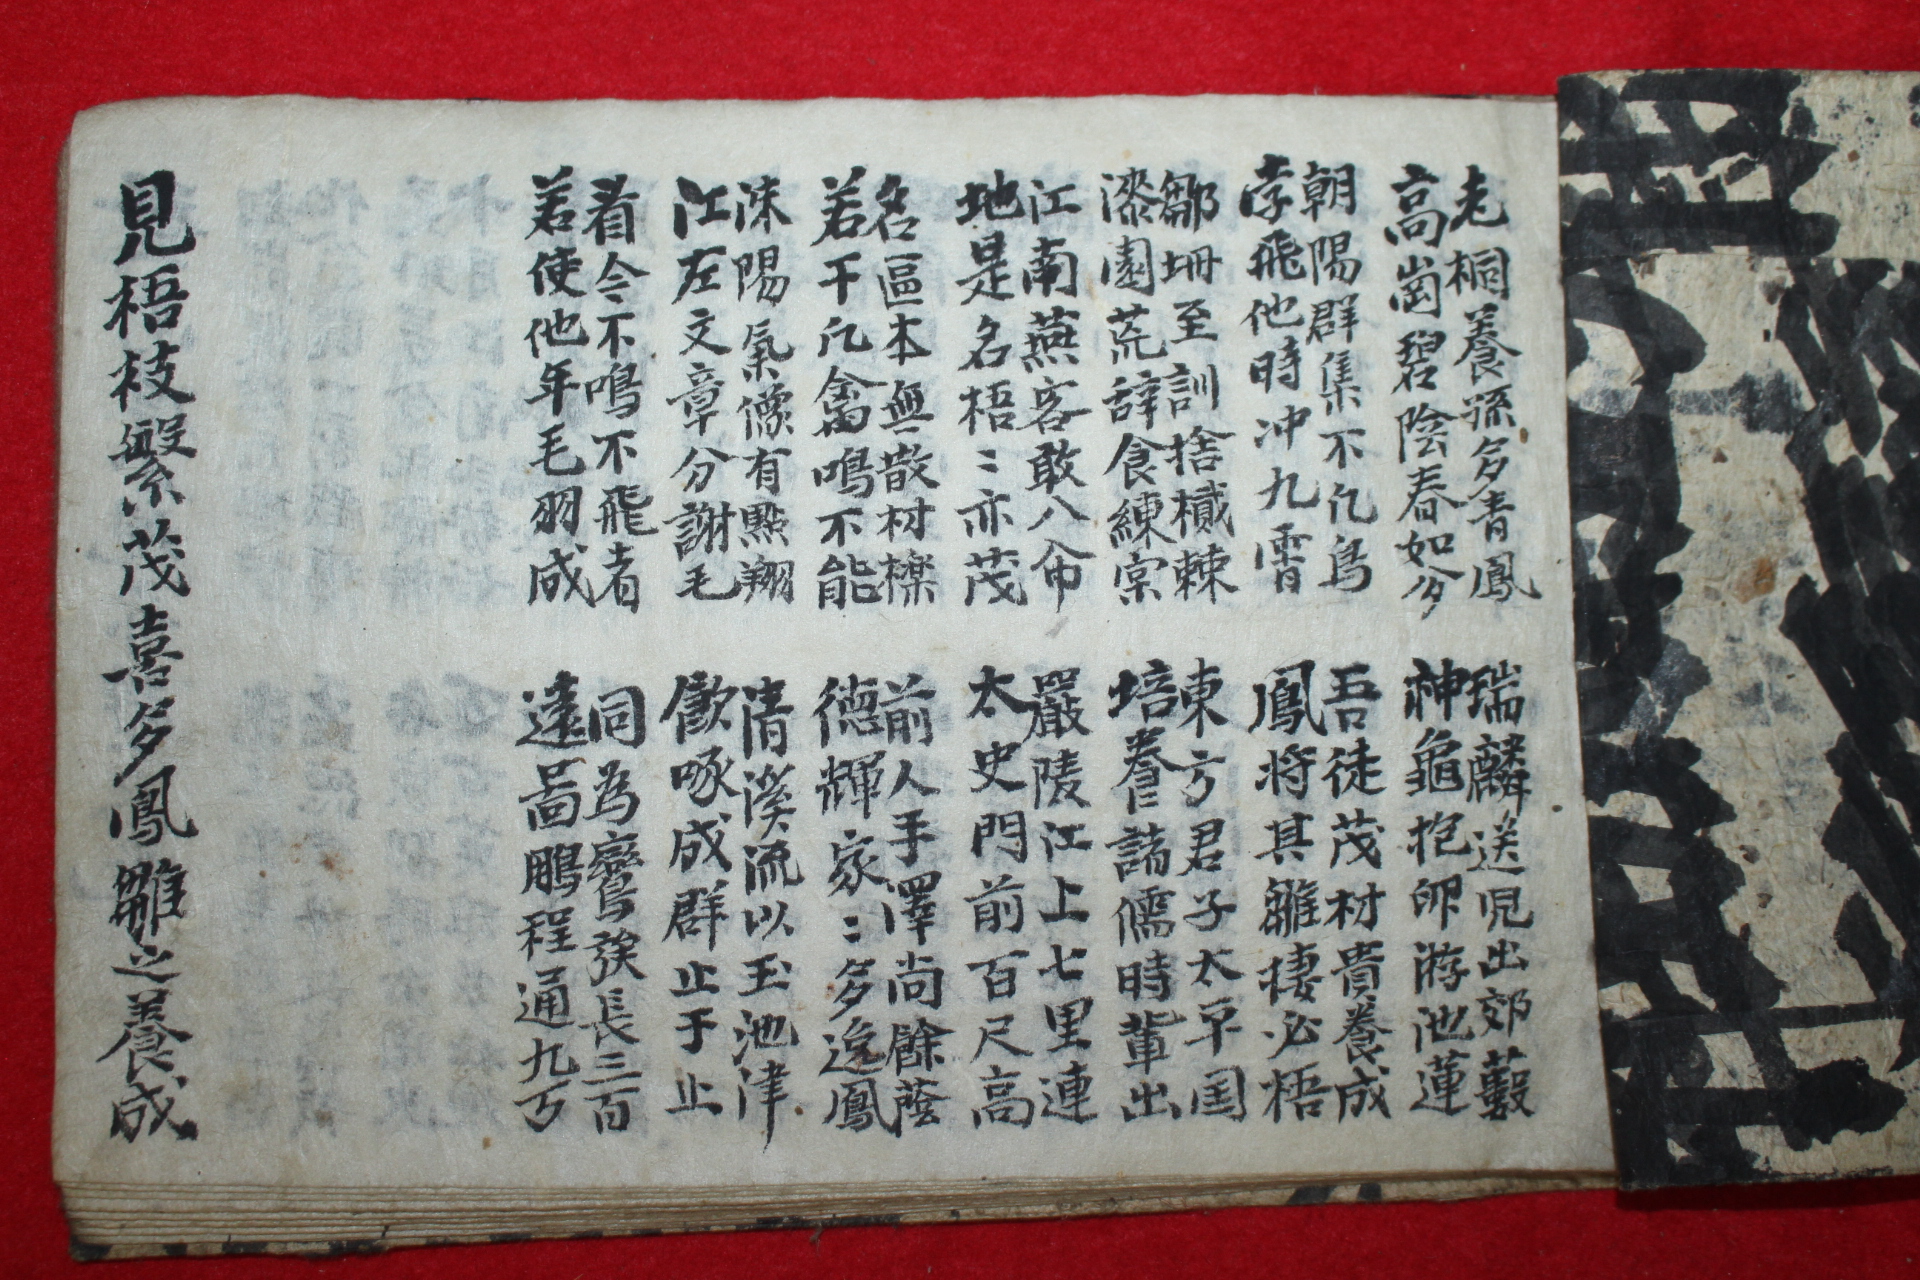 老桐養孫多青鳳
高崗碧陰春如多
朝陽群集不凡鳥
斈飛他時冲九霄
鄒坍至訓捨樲棘
漆園荒辭食練宲
江南燕客敢八命
地是名梧〻亦茂
名區本無散材櫟
若干凡禽鳴不能
洙陽氣像有點翔
江左文章分謝毛
看今不鳴不飛者
若使他年毛羽成
瑞麟送児出郊藪
神龜抱卵游池蓮
吾徒茂材貴養成
鳳將其雛棲必梧
東方君子太平国
培養諸儒時輩出
嚴陵江上七里連
太史門前百尺高
前人手澤尚餘蔭
德輝家〻多逸鳳
清溪流以玉池津
飮啄成群止于止
同為鸞族長三百
遠啚鵬程通九万
見梧枝繁茂喜多鳳雛之養成